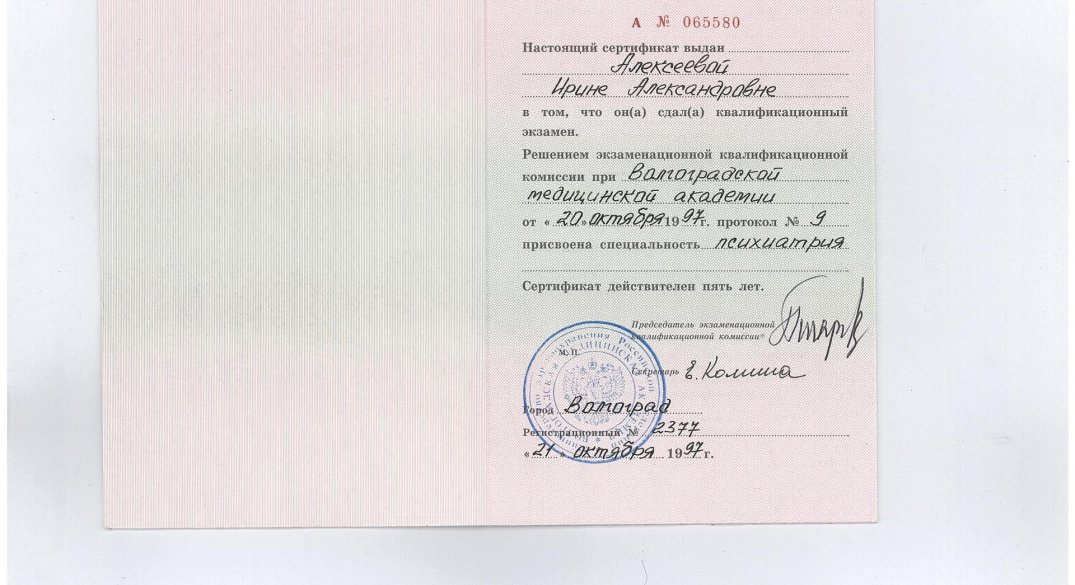 А № 065580
Настоящий сертификат выдан
Алексеевой
Ирине Александровне
в том, что он(а) сдал(а) квалификационный
экзамен.
Решением экзаменационной квалификационной
комиссии при Волгоградской
медицинской академии
от «20» октября 1997г. протокол № 9
присвоена специальность психиатрия
Сертификат действителен пять лет.
Председатель экзаменационной
квалификационной комиссии
М. П.
Секретарь
Город Волгоград
Регистрационный № 2377
«21» октября 1997г.